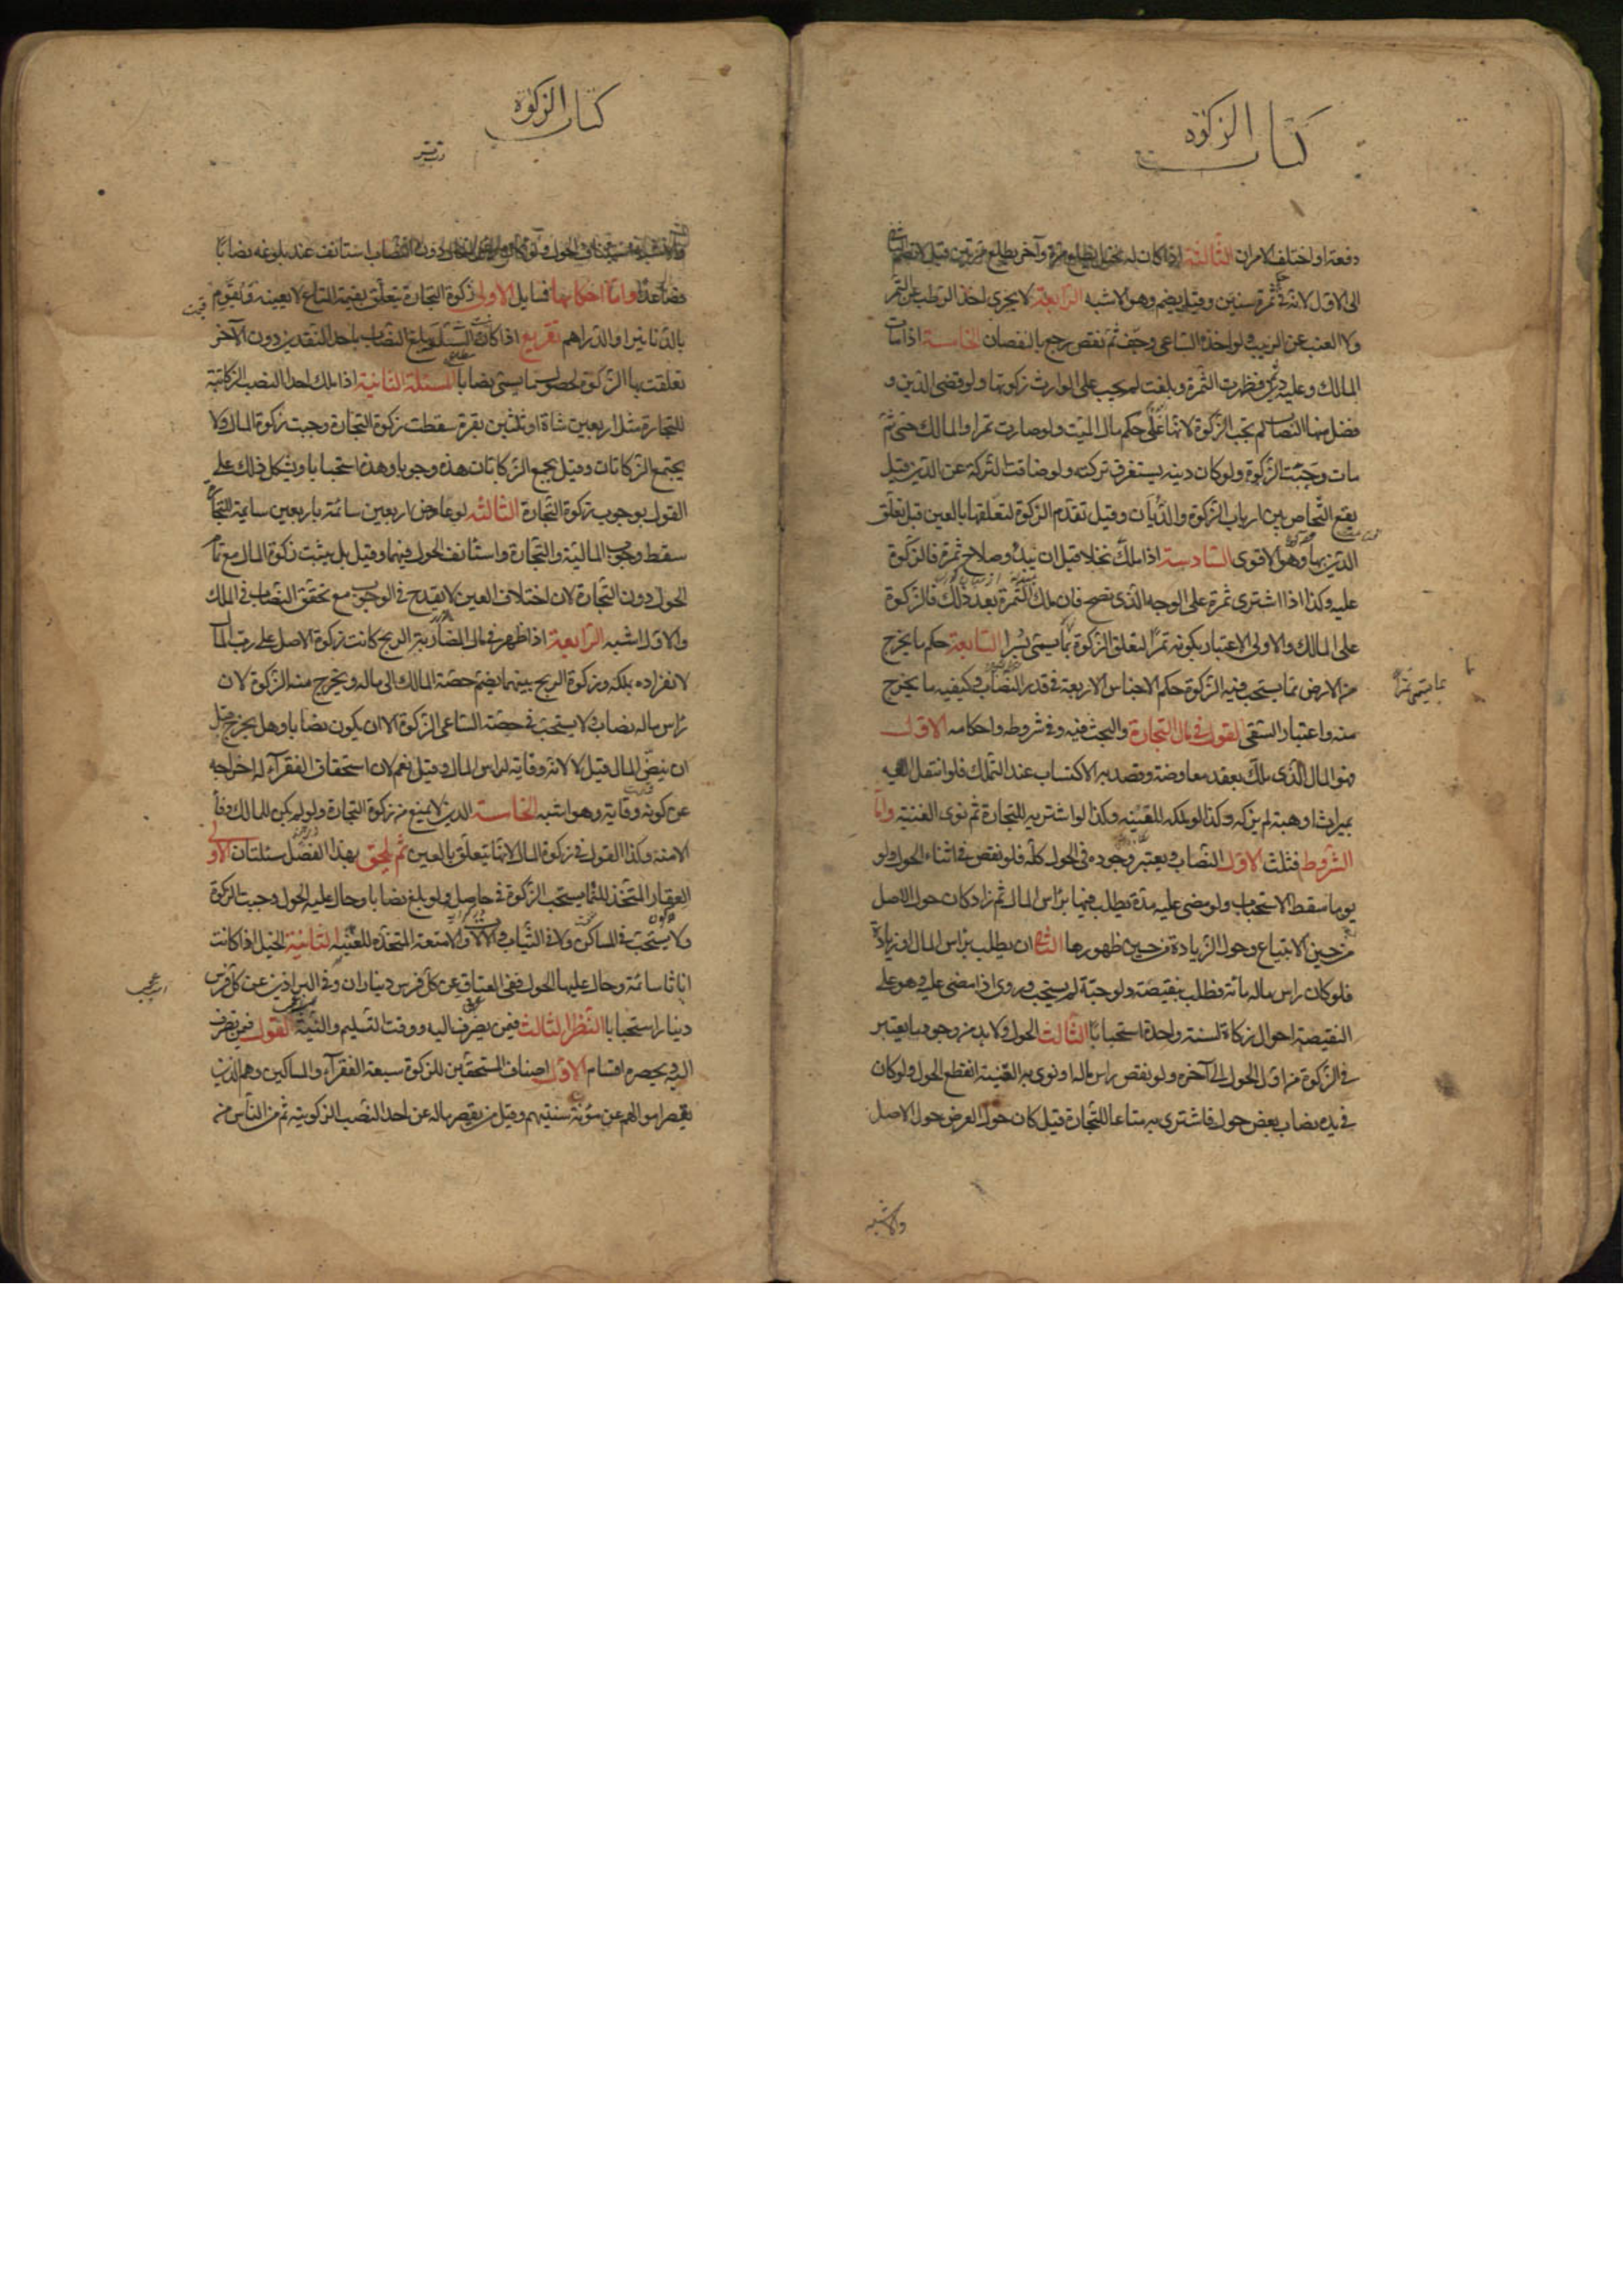 كتاب الزكوة
دفعة او اختلف الامران الثالثة اذا كان له نخل يطلع مرة وآخر يطلع مرتين قيل لا يضم الثاني
الى الاول لانه في حكم ثمرة سنتين وقيل يضم وهو الاشبه الرابعة لا يجزى اخذ الرطب عن التمر
ولا العنب عن الزبيب ولو اخذه الساعى وجف ثم نقص رجع بالنقصان الخامسة اذا مات
المالك وعليه دين فظهرت الثمرة وبلغت لم يجب على الوارث زكوتها ولو قضى الدين و
فضل منها النصاب لم تجب الزكوة لانها على حكم مال الميت ولو صارت تمرا والمالك حى ثم
مات وجبت الزكوة ولو كان دينه يستغرق تركته ولو ضاقت التركة عن الدين قيل
يقع التحاص بين ارباب الزكوة والديان وقيل تقدم الزكوة لتعلقها بالعين قبل تعلق
الدين بها وهو الاقوى السادسة اذا ملك نخلا قبل ان يبدو صلاح ثمرة فالزكوة
عليه وكذا اذا اشترى ثمرة على الوجه الذى يصح فان ملك الثمرة بعد ذلك فالزكوة
على المالك والاولى الاعتبار بكونه تمرا لتعلق الزكوة بما يسمى بسرا السابعة حكم ما يخرج
من الارض مما يستحب فيه الزكوة حكم الاجناس الاربعة في قدر النصاب وكيفيه ما يخرج
منه واعتبار السقى القول في مال التجارة والبحث فيه وفي شروطه واحكامه الاول
فهو المال الذى ملك بعقد معاوضة وقصد به الاكتساب عند التملك فلو انتقل اليه
بميراث او هبة لم يزكه وكذا لو ملكه للقنيه وكذا لو اشتريه للتجارة ثم نوى القنية واما
الشروط فثلث الاول النصاب ويعتبر وجوده فى الحول كله فلو نقص فى اثناء الحول ولو
يوما سقط الاستحباب ولو مضى عليه مدة يطلب فيها براس المال ثم زاد كان حول الاصل
من حين الابتياع وحول الزيادة من حين ظهورها الثانى ان يطلب براس المال او زيادة
فلو كان راس ماله مائة فطلب بنقيصة ولو حبة لم يستحب وروى اذا مضى عليه وهو على
النقيصة احوال زكاة لسنة واحدة استحبابا الثالث الحول ولا بد من وجود ما يعتبر
فى الزكوة من اول الحول الى آخره ولو نقص راس ماله او نوى به القنية انقطع الحول ولو كان
فى يده نصاب بعض حول فاشترى به متاعا للتجارة قيل كان حول العرض حول الاصل
بما يسمى تمرا
والاشبه
كتاب الزكوة
والاشبه استيناف الحول ولو كان راس المال دون النصاب استانف عند بلوغه نصابا
فصاعدا واما احكامها فمسايل الاولى زكوة التجارة يتعلق بقيمة المتاع لا بعينه ويقوم
بالدنانير او الدراهم تفريع اذا كانت السلعة تبلغ النصاب باحد النقدين دون الآخر
تعلقت بها الزكوة لحصول ما يسمى نصابا المسئلة الثانية اذا ملك احد النصب الزكاتية
للتجارة مثل اربعين شاة او ثلثين بقرة سقطت زكوة التجارة وجبت زكوة المال ولا
يجتمع الزكاتان وقيل يجمع الزكاتان هذه وجوبا وهذه استحبابا ويشكل ذلك على
القول بوجوب زكوة التجارة الثالثه لو عاوض اربعين سائمة باربعين سايمة للتجارة
سقط وجوب المالية والتجارة واستانف الحول فيهما وقيل بل يثبت زكوة المال مع تمام
الحول دون التجارة لان اختلاف العين لا يقدح فى الوجوب مع تحقق النصاب فى الملك
والاول اشبه الرابعة اذا ظهر فى مال المضاربة الربح كانت زكوة الاصل على رب المال
لانفراده بملكه وزكوة الربح بينهما يضم حصة المالك الى ماله ويخرج منه الزكوة لان
راس ماله نصاب ولا يستحب فى حصة الساعى الزكوة الا ان يكون نصابا وهل يخرج قبل
ان ينض المال قيل لا لانه وقاية لراس المال وقيل نعم لان استحقاق الفقراء له اخراجه
عن كونه وقاية وهو اشبه الخامسة الدين لا يمنع من زكوة التجارة ولو لم يكن للمالك وفاء
الا منه وكذا القول فى زكوة المال لانها يتعلق بالعين ثم يلحق بهذا الفصل مسئلتان الاولى
العقار المتخذ للنماء يستحب الزكوة فى حاصله ولو بلغ نصابا وحال عليه الحول وجبت الزكوة
ولا يستحب فى المساكن ولا فى الثياب ولا الآلات والامتعة المتخذه للقنية الثانية الخيل اذا كانت
اناثا سائمة وحال عليها الحول ففى العتاق عن كل فرس ديناران وفى البراذين عن كل فرس
دينار استحبابا النظر الثالث فيمن يصرف اليه ووقت التسليم والنية القول فيمن يصرف
اليه ويحصره اقسام الاول اصناف المستحقين للزكوة سبعة الفقراء والمساكين وهم الذين
يقصر اموالهم عن مؤنة سنتهم وقيل من يقصر ماله عن احد النصب الزكوية ثم من الناس من